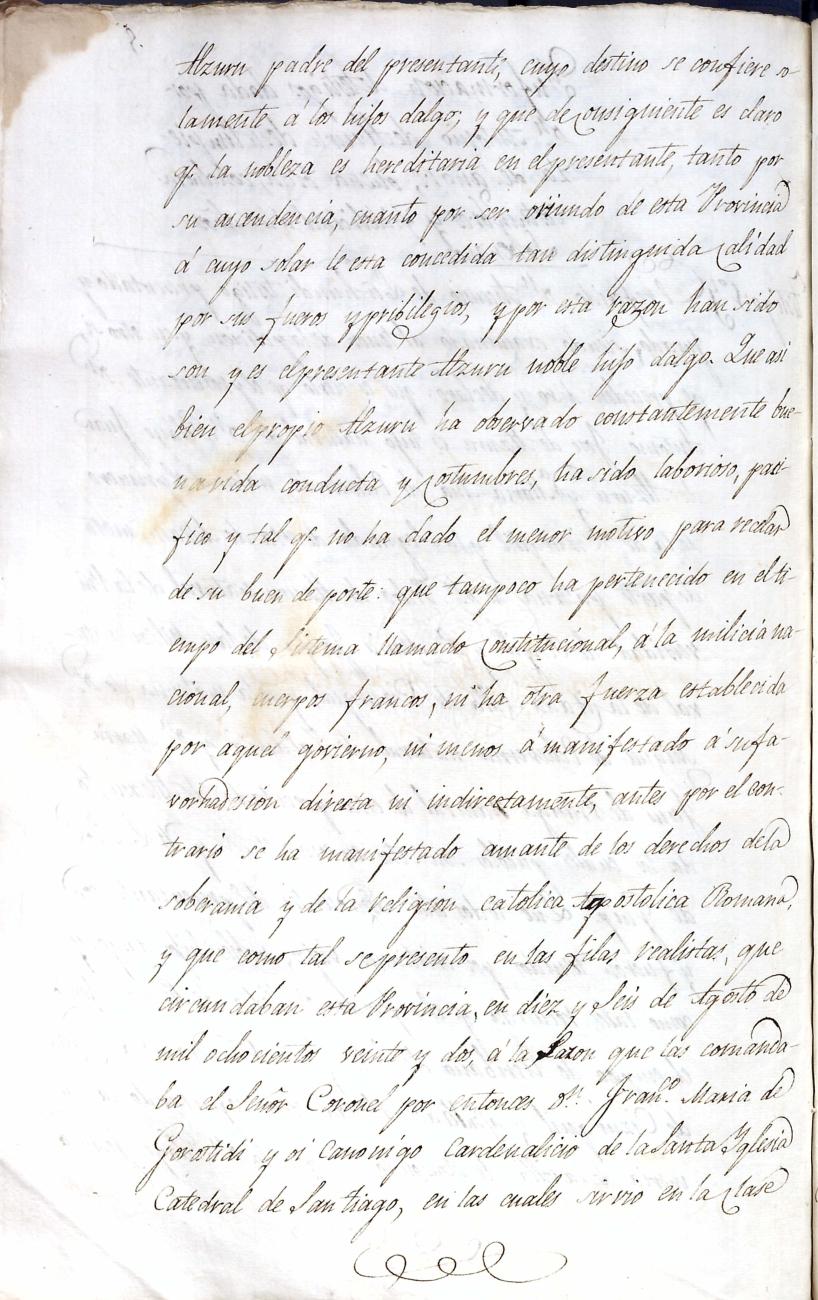 Alzuru padre del presentante, cuyo destino se confiere so-
lamente á los hijos dalgo; y que de consiguiente es claro
qe. la nobleza es hereditaria en el presentante, tanto por
su ascendencia, cuanto por ser oriundo de esta Provincia
á cuyo solar le esta concedida tan distinguida calidad
por sus fueros y pribilegios, y por esta razon han sido
son y es el presentante Alzuru noble hijo dalgo. Que asi
bien el propio Alzuru ha observado constantemente bue-
na vida conducta y costumbres, ha sido laborioso, paci-
fico y tal qe. no ha dado el menor motivo para recelar
de su buen de porte: que tampoco ha pertenecido en el ti-
empo del Sistema llamado Constitucional, á la milicia na-
cional, cuerpos francos, ni ha otra fuerza establecida
por aquel govierno, ni menos á manifestado á su fa-
vor hadesion directa ni indirectamente, antes por el con-
trario se ha manifestado amante de los derechos de la
soberania y de la religion catolica Apostolica Romana,
y que como tal se presento en las filas realistas, que
circundaban esta Provincia, en diez y Seis de Agosto de
mil ochocientos veinte y dos á la Sazon que las comanda-
ba el Señor Coronel por entonces Dn. Franco. Maria de
Gorostidi y oi canonigo Cardenalicio de la Santa Yglesia
Catedral de Santiago, en las cuales sirvio en la clase